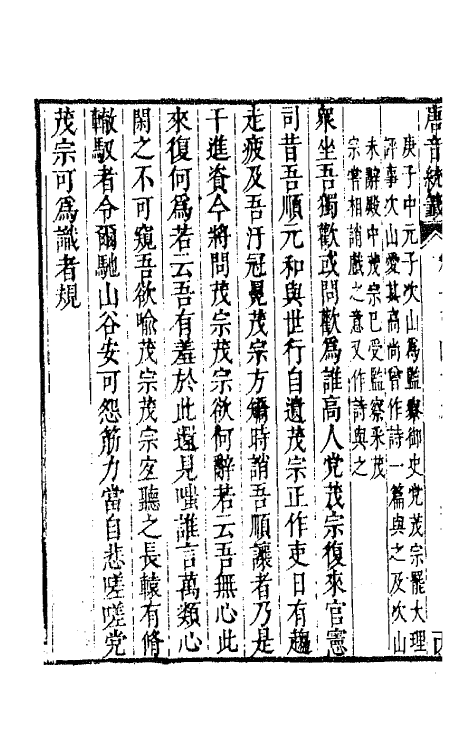 唐音統籤
庚子中元子次山為監察御史党茂宗罷大理
評事次山愛其高尚曾作詩一篇與之及次山
未辭殿中茂宗已受監察采茂
宗嘗相誚戲之意又作詩與之
衆坐吾獨歡或問歡為誰高人党茂宗復來官憲
司昔吾順元和與世行自遺茂宗正作吏日有趨
走疲及吾汙冠冕茂宗方矯時誚吾順讓者乃是
干進資今將問茂宗茂宗欲何辭若云吾無心此
來復何為若云吾有羞於此還見嗤誰言萬類心
閑之不可窺吾欲喻茂宗茂宗宜聽之長轅有脩
轍馭者令爾馳山谷安可怨筋力當自悲嗟嗟党
茂宗可為識者規